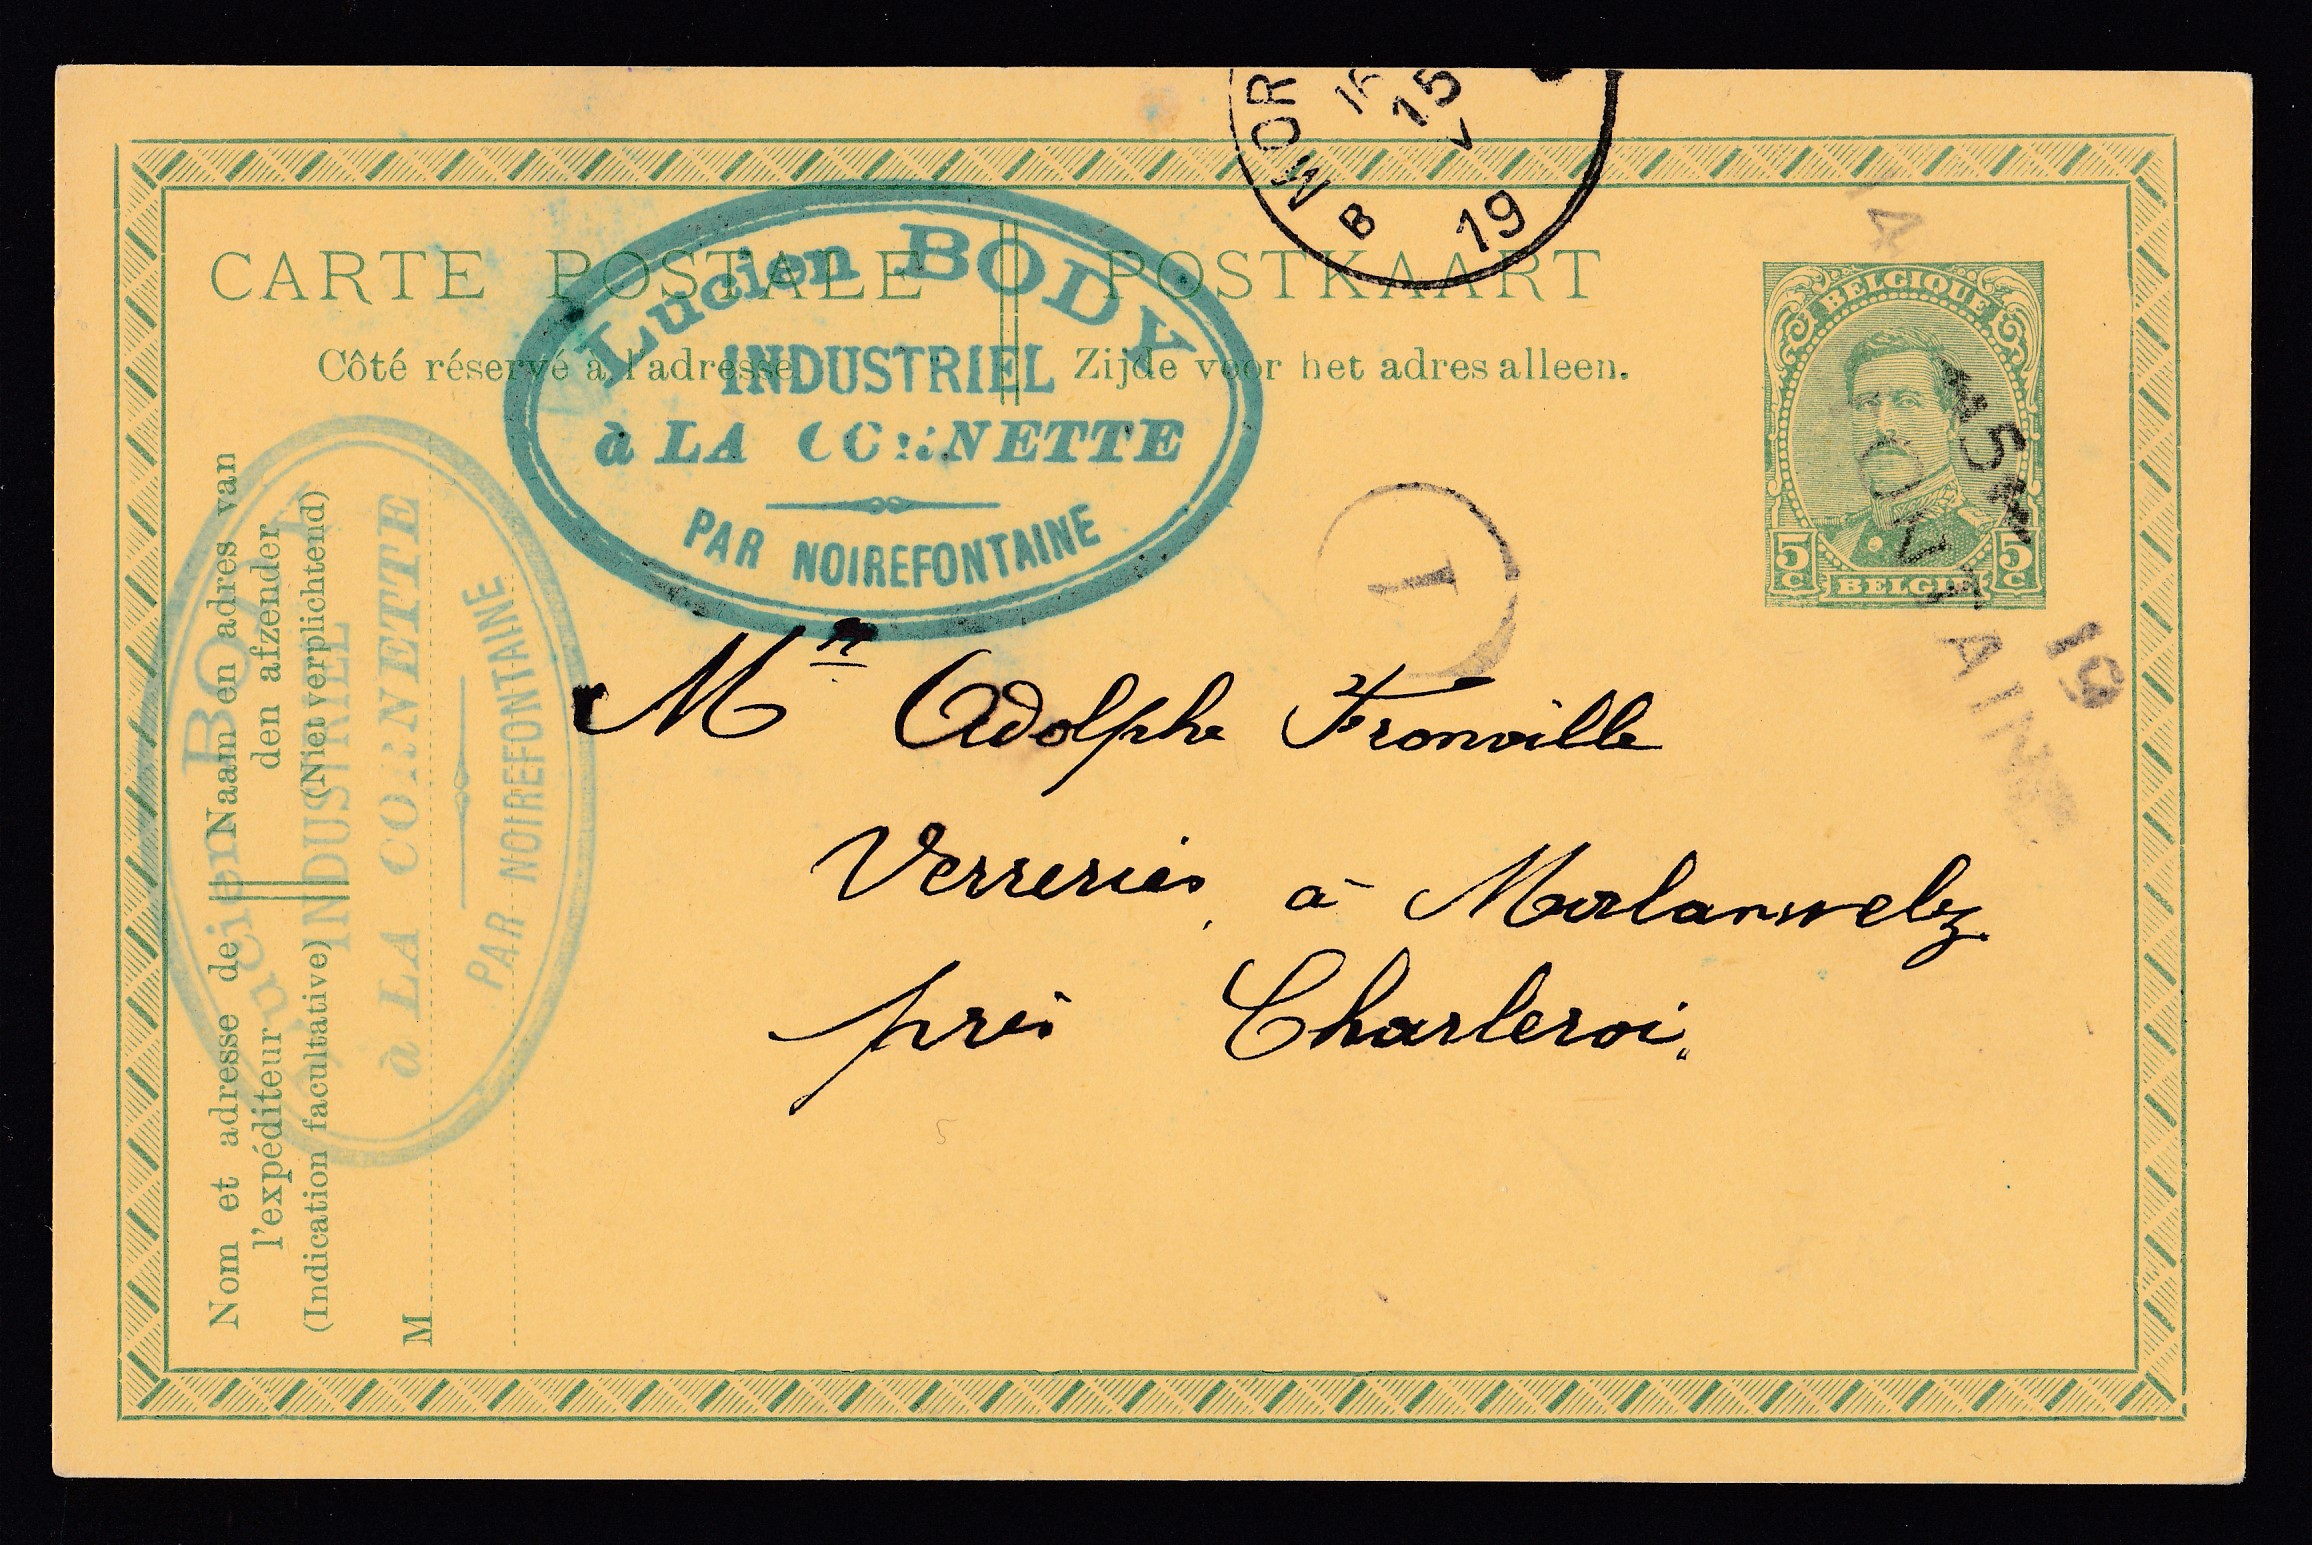 MOR
B
15
V
19
CARTE POSTALE
POSTKAART
Côté réservé à l'adresse
Zijde voor het adres alleen.
Lucien BODY
INDUSTRIEL
à LA CORNETTE
PAR NOIREFONTAINE
14
BELGIQUE
5 C
BELGIË
5 C
19
1
Nom et adresse de
l'expéditeur
(Indication facultative)
Naam en adres van
den afzender
(Niet verplichtend)
M
Lucien BODY
INDUSTRIEL
à LA CORNETTE
PAR NOIREFONTAINE
Mr Adolphe Fronville
Verreries à Morlanwelz
près Charleroi